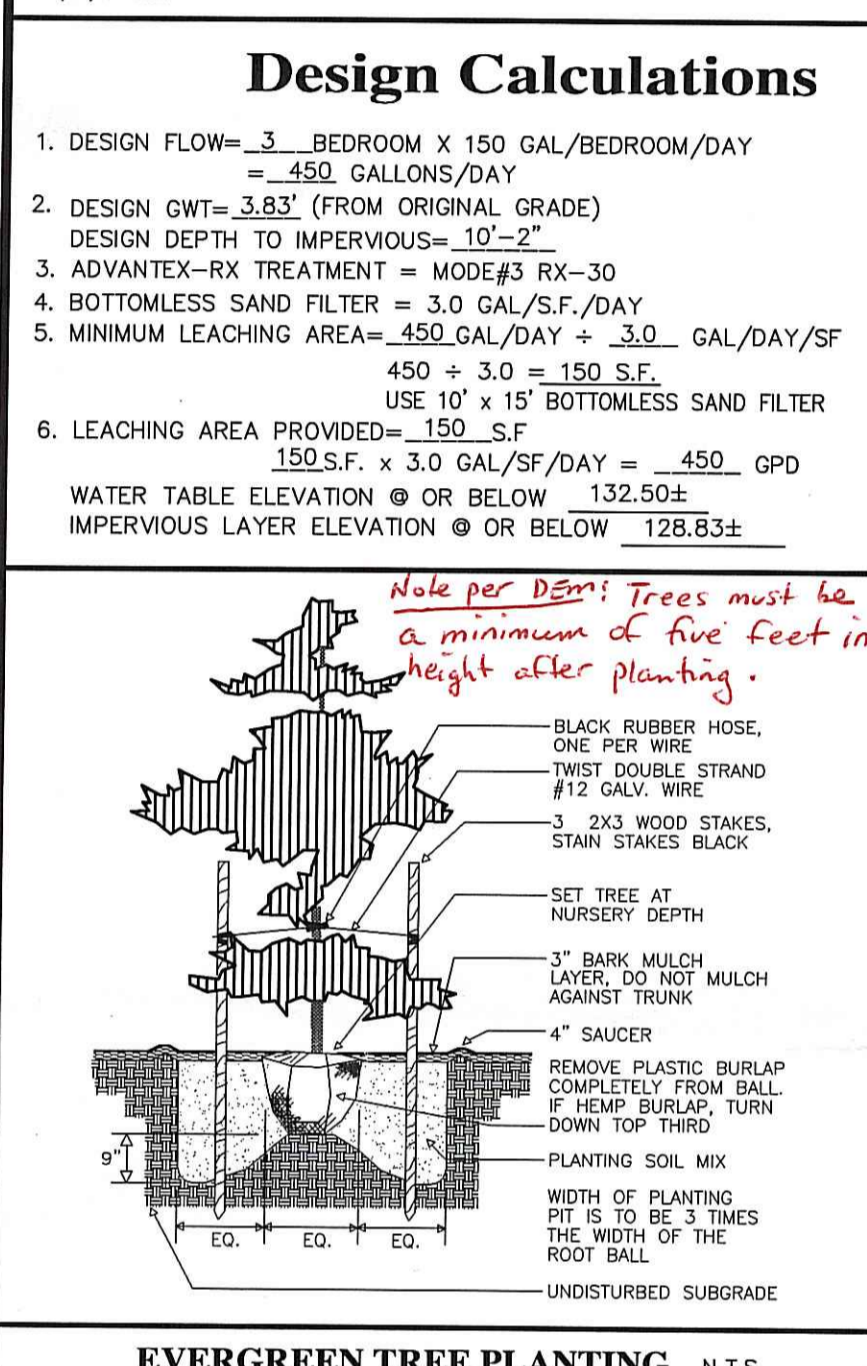 Design Calculations
1. DESIGN FLOW= 3 BEDROOM X 150 GAL/BEDROOM/DAY
= 450 GALLONS/DAY
2. DESIGN GWT= 3.83' (FROM ORIGINAL GRADE)
DESIGN DEPTH TO IMPERVIOUS= 10'-2"
3. ADVANTEX-RX TREATMENT = MODE#3 RX-30
4. BOTTOMLESS SAND FILTER = 3.0 GAL/S.F./DAY
5. MINIMUM LEACHING AREA= 450 GAL/DAY ÷ 3.0 GAL/DAY/SF
450 ÷ 3.0 = 150 S.F.
USE 10' x 15' BOTTOMLESS SAND FILTER
6. LEACHING AREA PROVIDED= 150 S.F
150 S.F. x 3.0 GAL/SF/DAY = 450 GPD
WATER TABLE ELEVATION @ OR BELOW 132.50±
IMPERVIOUS LAYER ELEVATION @ OR BELOW 128.83±
Note per DEM: Trees must be
a minimum of five feet in
height after planting.
BLACK RUBBER HOSE,
ONE PER WIRE
TWIST DOUBLE STRAND
#12 GALV. WIRE
3 2X3 WOOD STAKES,
STAIN STAKES BLACK
SET TREE AT
NURSERY DEPTH
3" BARK MULCH
LAYER, DO NOT MULCH
AGAINST TRUNK
4" SAUCER
REMOVE PLASTIC BURLAP
COMPLETELY FROM BALL.
IF HEMP BURLAP, TURN
DOWN TOP THIRD
PLANTING SOIL MIX
9"
WIDTH OF PLANTING
PIT IS TO BE 3 TIMES
THE WIDTH OF THE
ROOT BALL
EQ. EQ. EQ.
UNDISTURBED SUBGRADE
EVERGREEN TREE PLANTING N.T.S.